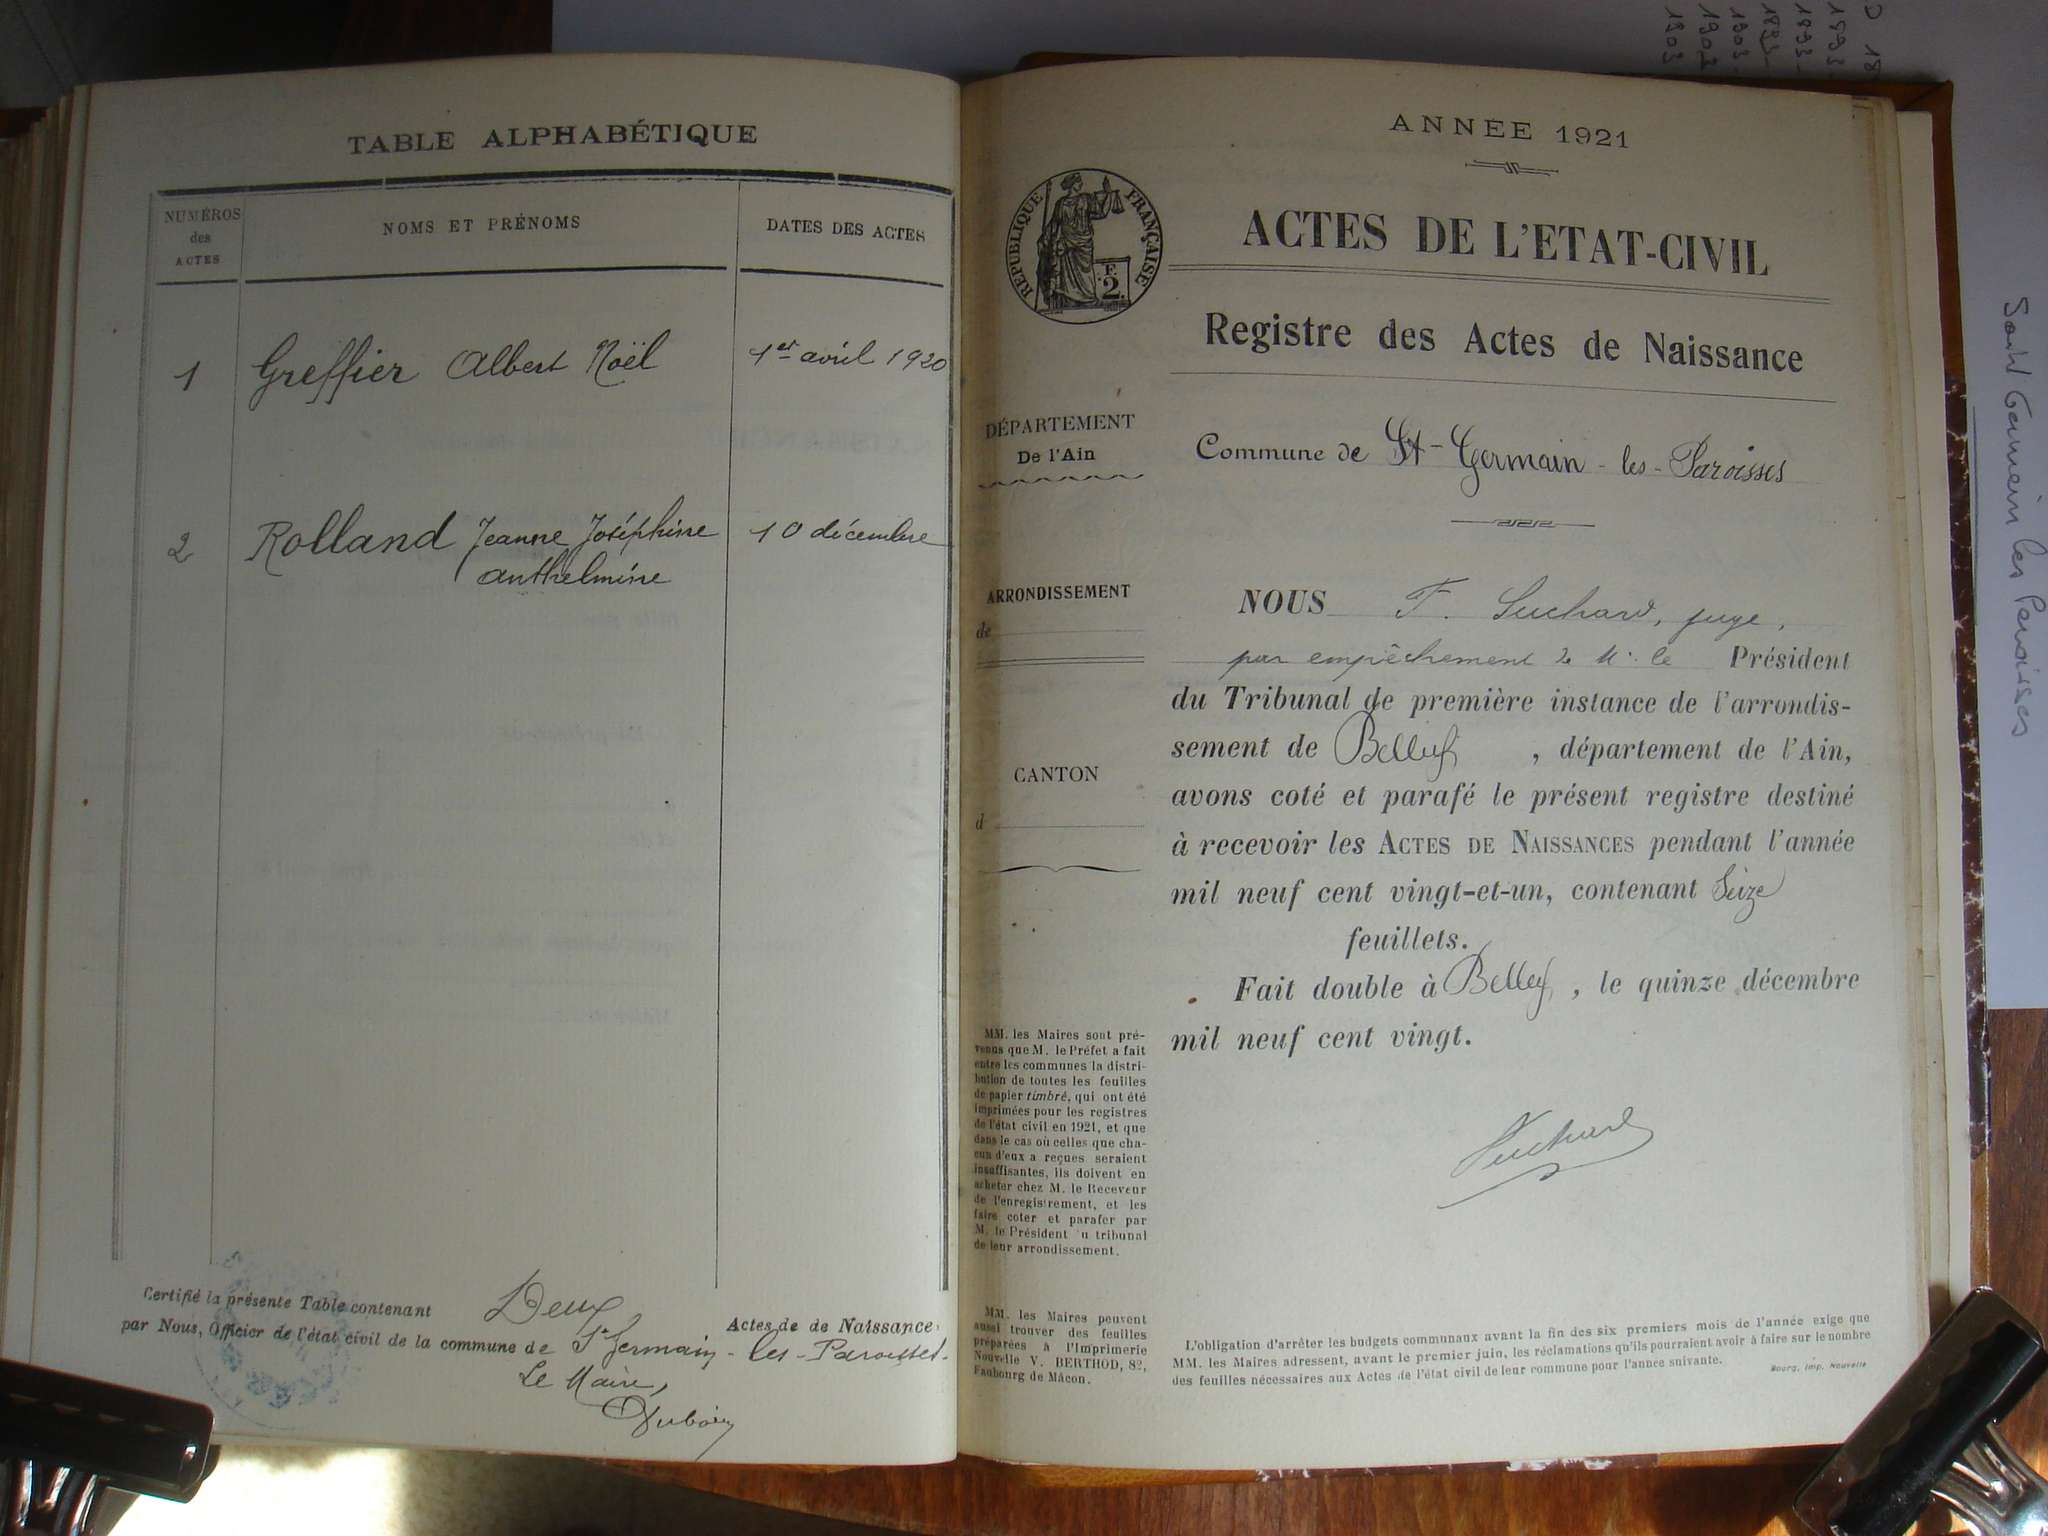 TABLE ALPHABÉTIQUE
NUMÉROS
des
ACTES
NOMS ET PRÉNOMS
DATES DES ACTES
1 Greffier Albert Noël 1er avril 1920
2 Rolland Jeanne Joséphine 10 décembre
Anthelmine
Certifié la présente Table contenant Deux Actes de de Naissance
par Nous, Officier de l'état civil de la commune de St Germain-les-Paroisses.
Le Maire,
Dubois
ANNÉE 1921
RÉPUBLIQUE FRANÇAISE
2 F.
ACTES DE L'ETAT-CIVIL
Registre des Actes de Naissance
DÉPARTEMENT
De l'Ain
Commune de St-Germain-les-Paroisses
ARRONDISSEMENT
de
CANTON
d
NOUS F. Suchard, juge,
par empêchement de M. le Président
du Tribunal de première instance de l'arrondis-
sement de Belley, département de l'Ain,
avons coté et parafé le présent registre destiné
à recevoir les ACTES DE NAISSANCES pendant l'année
mil neuf cent vingt-et-un, contenant Seize
feuillets.
Fait double à Belley, le quinze décembre
mil neuf cent vingt.
Suchard
MM. les Maires sont pré-
venus que M. le Préfet a fait
entre les communes la distri-
bution de toutes les feuilles
de papier timbré, qui ont été
imprimées pour les registres
de l'état civil en 1921, et que
dans le cas où celles que cha-
cun d'eux a reçues seraient
insuffisantes, ils doivent en
acheter chez M. le Receveur
de l'enregistrement, et les
faire coter et parafer par
M. le Président u tribunal
de leur arrondissement.
MM. les Maires peuvent
aussi trouver des feuilles
préparées à l'Imprimerie
Nouvelle V. BERTHOD, 82,
Faubourg de Mâcon.
L'obligation d'arrêter les budgets communaux avant la fin des six premiers mois de l'année exige que
MM. les Maires adressent, avant le premier juin, les réclamations qu'ils pourraient avoir à faire sur le nombre
des feuilles nécessaires aux Actes de l'état civil de leur commune pour l'année suivante.
Bourg, Imp. Nouvelle
Saint Germain les Paroisses
1893-
1893-
1893-
1903-
1902
1903